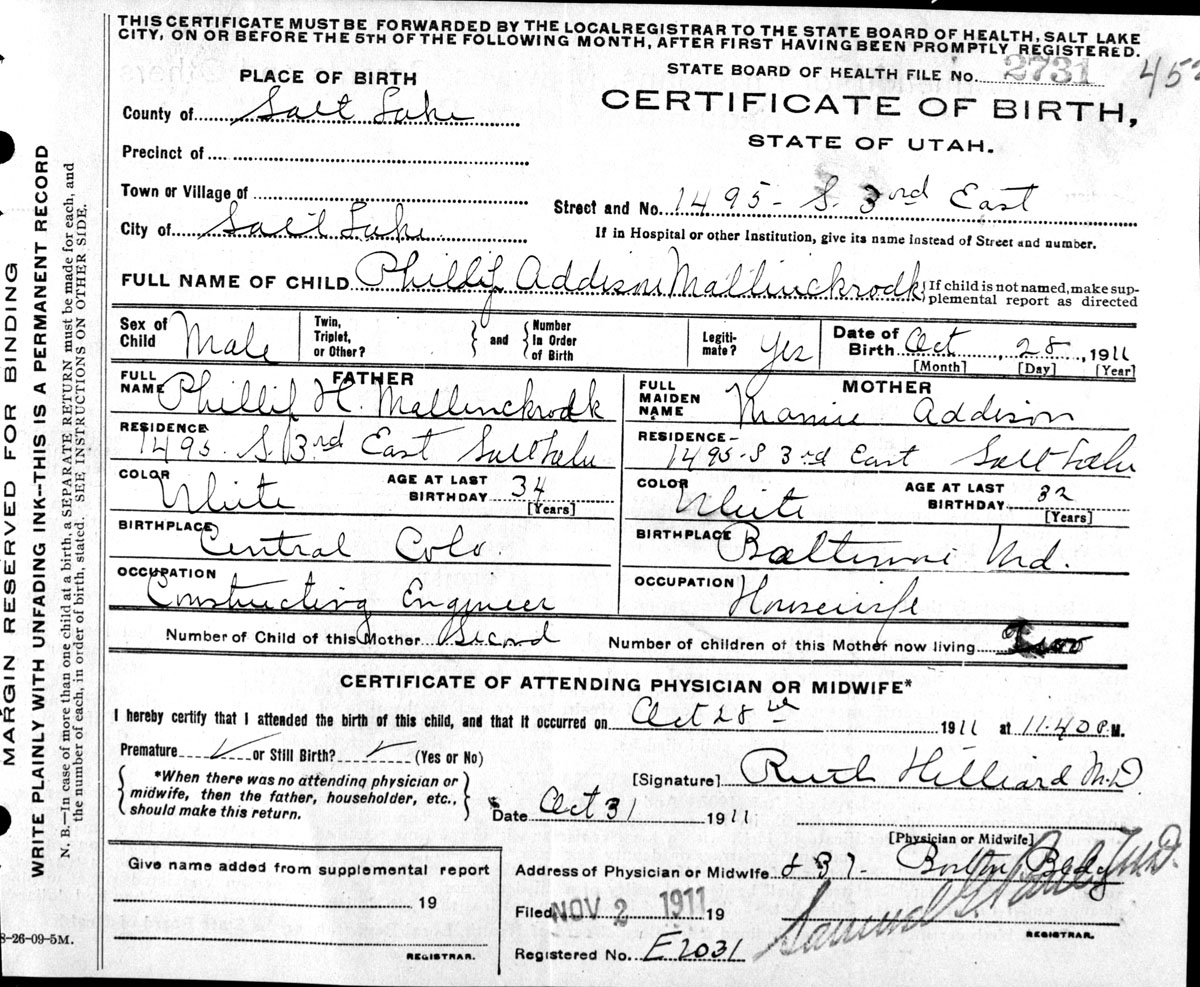 THIS CERTIFICATE MUST BE FORWARDED BY THE LOCAL REGISTRAR TO THE STATE BOARD OF HEALTH, SALT LAKE
CITY, ON OR BEFORE THE 5TH OF THE FOLLOWING MONTH, AFTER FIRST HAVING BEEN PROMPTLY REGISTERED.
STATE BOARD OF HEALTH FILE No. 2731 452
PLACE OF BIRTH
CERTIFICATE OF BIRTH,
STATE OF UTAH.
County of Salt Lake
Precinct of
Town or Village of
Street and No. 1495 - S. 3rd East
City of Salt Lake
If in Hospital or other Institution, give its name instead of Street and number.
FULL NAME OF CHILD Phillip Addison Mallinckrodk
{If child is not named, make sup-
plemental report as directed
Sex of Child Male
Twin, Triplet, or Other? } and { Number In Order of Birth
Legiti-mate? Yes
Date of Birth Oct 28, 1911
[Month] [Day] [Year]
FATHER
FULL NAME Phillip H. Mallinckrodk
MOTHER
FULL MAIDEN NAME Mamie Addison
RESIDENCE 1495 S. 3rd East Salt Lake
RESIDENCE - 1495 - S 3rd East Salt Lake
COLOR White AGE AT LAST BIRTHDAY 34 [Years]
COLOR White AGE AT LAST BIRTHDAY 32 [Years]
BIRTHPLACE Central Colo.
BIRTHPLACE Baltimore Md.
OCCUPATION Constructing Engineer
OCCUPATION Housewife
Number of Child of this Mother Second
Number of children of this Mother now living Two
CERTIFICATE OF ATTENDING PHYSICIAN OR MIDWIFE*
I hereby certify that I attended the birth of this child, and that it occurred on Oct 28 1911 at 11.40 P.M.
Premature ✓ or Still Birth? ✓ (Yes or No)
{ *When there was no attending physician or
midwife, then the father, householder, etc.,
should make this return. }
[Signature] Ruth Hilliard M.D.
Date Oct 31 1911
[Physician or Midwife]
Give name added from supplemental report
19
REGISTRAR.
Address of Physician or Midwife Boston Bldg
Filed NOV 2 1911 19
Samuel G. M.D.
REGISTRAR.
Registered No. E2031
8-26-09-5M.
MARGIN RESERVED FOR BINDING
WRITE PLAINLY WITH UNFADING INK--THIS IS A PERMANENT RECORD
N. B.—In case of more than one child at a birth, a SEPARATE RETURN must be made for each, and
the number of each, in order of birth, stated. SEE INSTRUCTIONS ON OTHER SIDE.